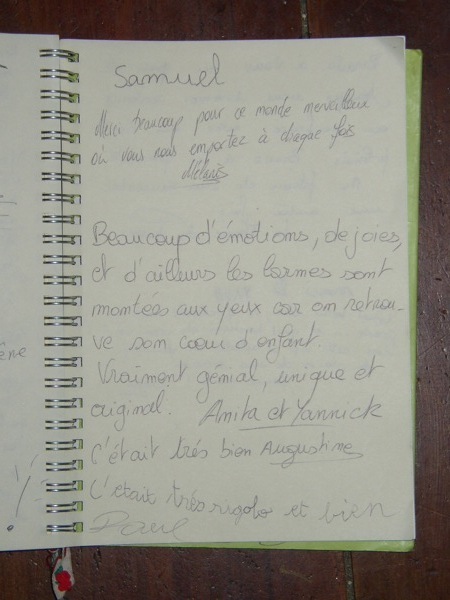 Samuel
Merci beaucoup pour ce monde merveilleux
où vous nous emportez à chaque fois
Beaucoup d'émotions, de joies,
et d'ailleurs les larmes sont
montées aux yeux car on retrou-
ve son cœur d'enfant.
Vraiment génial, unique et
original. Anita et Yannick
C'était très bien Augustine
C'était très rigolo et bien